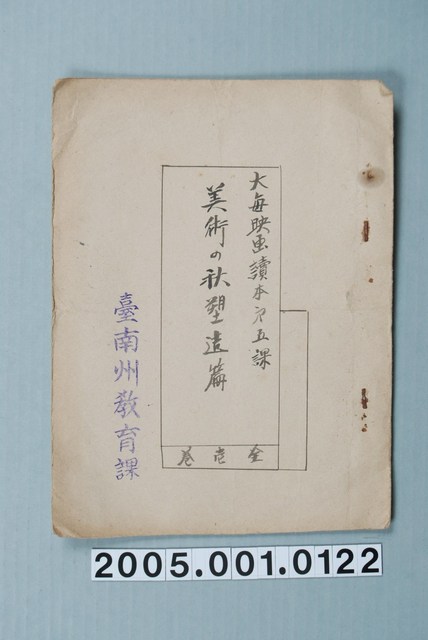 大每映画讀本第五課
美術の秋塑造篇
全壱巻
臺南州敎育課
2005.001.0122